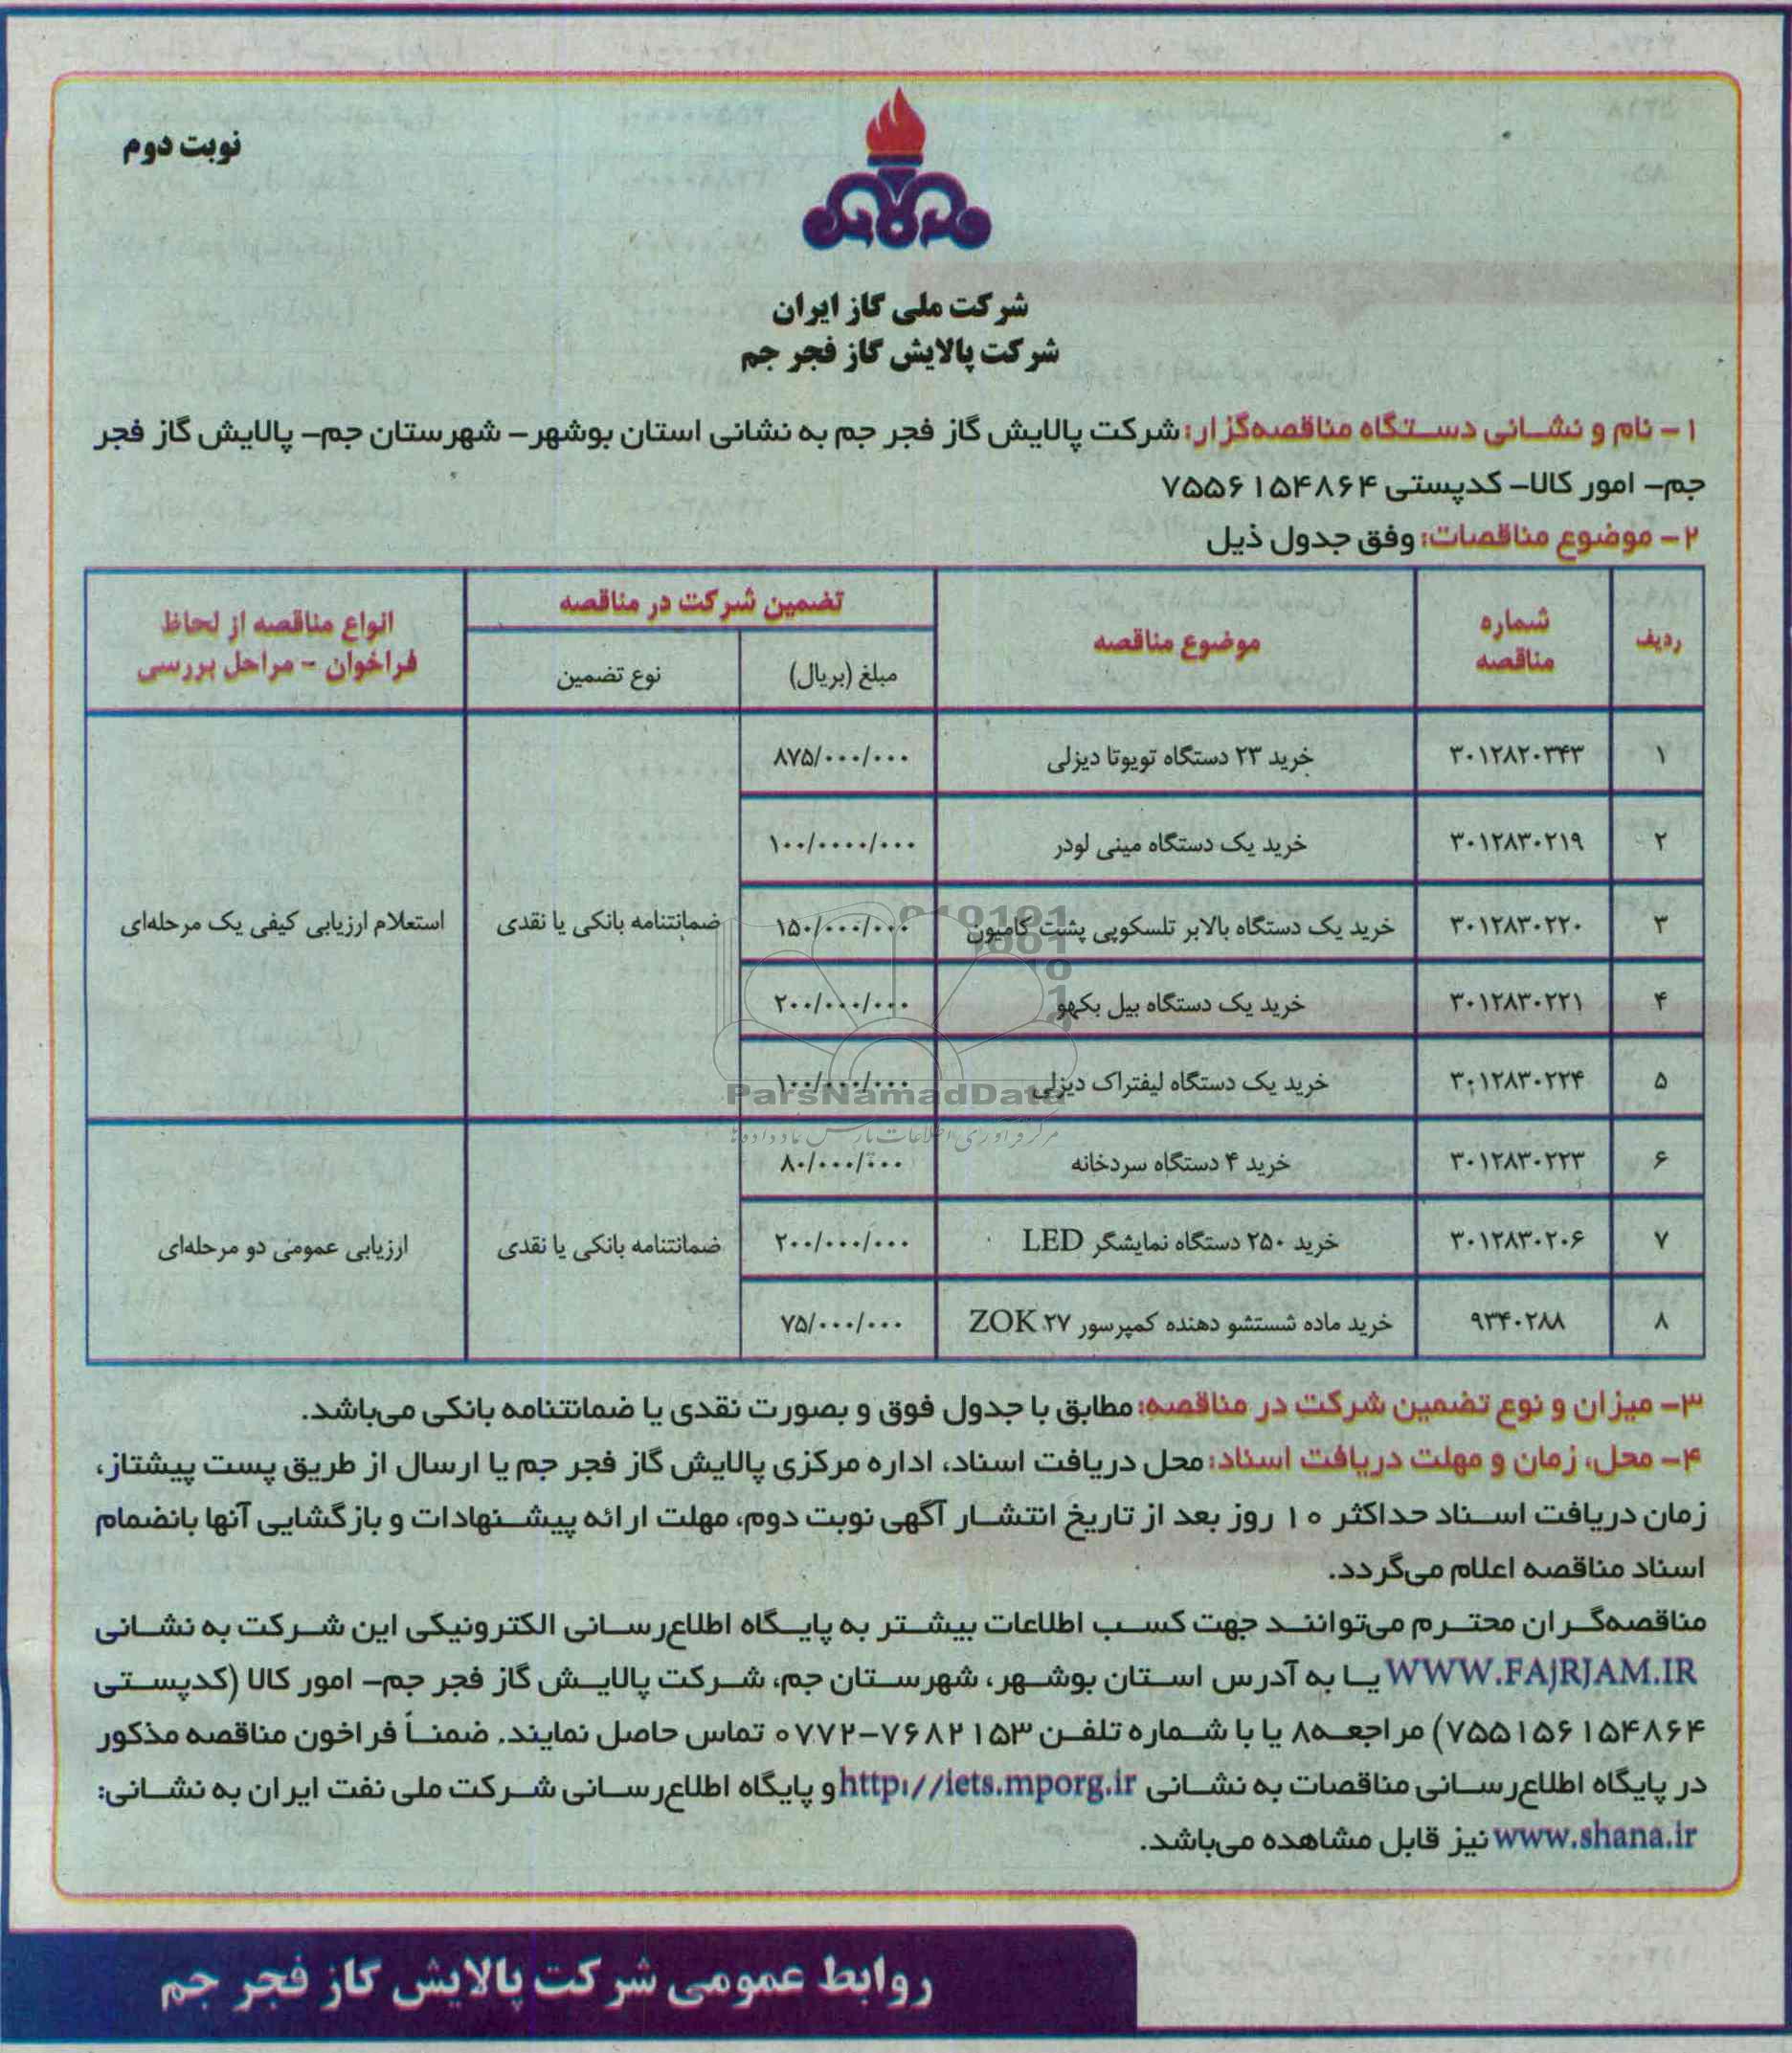 نوبت دوم
شرکت ملی گاز ایران
شرکت پالایش گاز فجر جم
۱- نام و نشانی دستگاه مناقصه‌گزار: شرکت پالایش گاز فجر جم به نشانی استان بوشهر- شهرستان جم- پالایش گاز فجر
جم- امور کالا- کدپستی ۷۵۵۶۱۵۴۸۶۴
۲- موضوع مناقصات: وفق جدول ذیل
ردیف شماره مناقصه موضوع مناقصه تضمین شرکت در مناقصه انواع مناقصه از لحاظ فراخوان - مراحل بررسی
مبلغ (بریال) نوع تضمین
۱ ۳۰۱۲۸۲۰۳۴۳ خرید ۲۳ دستگاه تویوتا دیزلی ۸۷۵/۰۰۰/۰۰۰
۲ ۳۰۱۲۸۳۰۲۱۹ خرید یک دستگاه مینی لودر ۱۰۰/۰۰۰۰/۰۰۰
۳ ۳۰۱۲۸۳۰۲۲۰ خرید یک دستگاه بالابر تلسکوپی پشت کامیون ۱۵۰/۰۰۰/۰۰۰ ضمانتنامه بانکی یا نقدی استعلام ارزیابی کیفی یک مرحله‌ای
۴ ۳۰۱۲۸۳۰۲۲۱ خرید یک دستگاه بیل بکهو ۲۰۰/۰۰۰/۰۰۰
۵ ۳۰۱۲۸۳۰۲۲۴ خرید یک دستگاه لیفتراک دیزلی ۱۰۰/۰۰۰/۰۰۰
ParsNamadData
مرکز فرآوری اطلاعات پارس نماد داده‌ها
۶ ۳۰۱۲۸۳۰۲۲۳ خرید ۴ دستگاه سردخانه ۸۰/۰۰۰/۰۰۰
۷ ۳۰۱۲۸۳۰۲۰۶ خرید ۲۵۰ دستگاه نمایشگر LED ۲۰۰/۰۰۰/۰۰۰ ضمانتنامه بانکی یا نقدی ارزیابی عمومی دو مرحله‌ای
۸ ۹۳۴۰۲۸۸ خرید ماده شستشو دهنده کمپرسور ZOK ۲۷ ۷۵/۰۰۰/۰۰۰
۳- میزان و نوع تضمین شرکت در مناقصه: مطابق با جدول فوق و بصورت نقدی یا ضمانتنامه بانکی می‌باشد.
۴- محل، زمان و مهلت دریافت اسناد: محل دریافت اسناد، اداره مرکزی پالایش گاز فجر جم یا ارسال از طریق پست پیشتاز،
زمان دریافت اسناد حداکثر ۱۰ روز بعد از تاریخ انتشار آگهی نوبت دوم، مهلت ارائه پیشنهادات و بازگشایی آنها بانضمام
اسناد مناقصه اعلام می‌گردد.
مناقصه‌گران محترم می‌توانند جهت کسب اطلاعات بیشتر به پایگاه اطلاع‌رسانی الکترونیکی این شرکت به نشانی
WWW.FAJRJAM.IR یا به آدرس استان بوشهر، شهرستان جم، شرکت پالایش گاز فجر جم- امور کالا (کدپستی
۷۵۵۱۵۶۱۵۴۸۶۴) مراجعه۸ یا با شماره تلفن ۷۶۸۲۱۵۳-۰۷۷۲ تماس حاصل نمایند. ضمناً فراخون مناقصه مذکور
در پایگاه اطلاع‌رسانی مناقصات به نشانی http://iets.mporg.ir و پایگاه اطلاع‌رسانی شرکت ملی نفت ایران به نشانی:
www.shana.ir نیز قابل مشاهده می‌باشد.
روابط عمومی شرکت پالایش گاز فجر جم